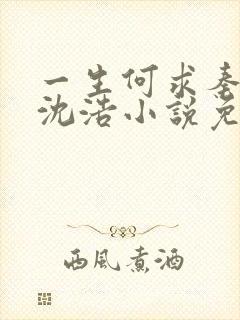 一生何求秦
沈浩小說免
西風煮酒